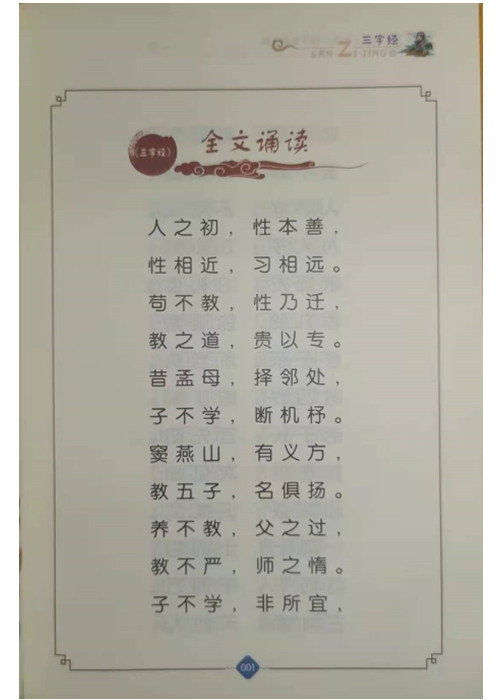 三字经
SAN ZI JING
《三字经》
全文诵读
人之初，性本善，
性相近，习相远。
苟不教，性乃迁，
教之道，贵以专。
昔孟母，择邻处，
子不学，断机杼。
窦燕山，有义方，
教五子，名俱扬。
养不教，父之过，
教不严，师之惰。
子不学，非所宜，
001